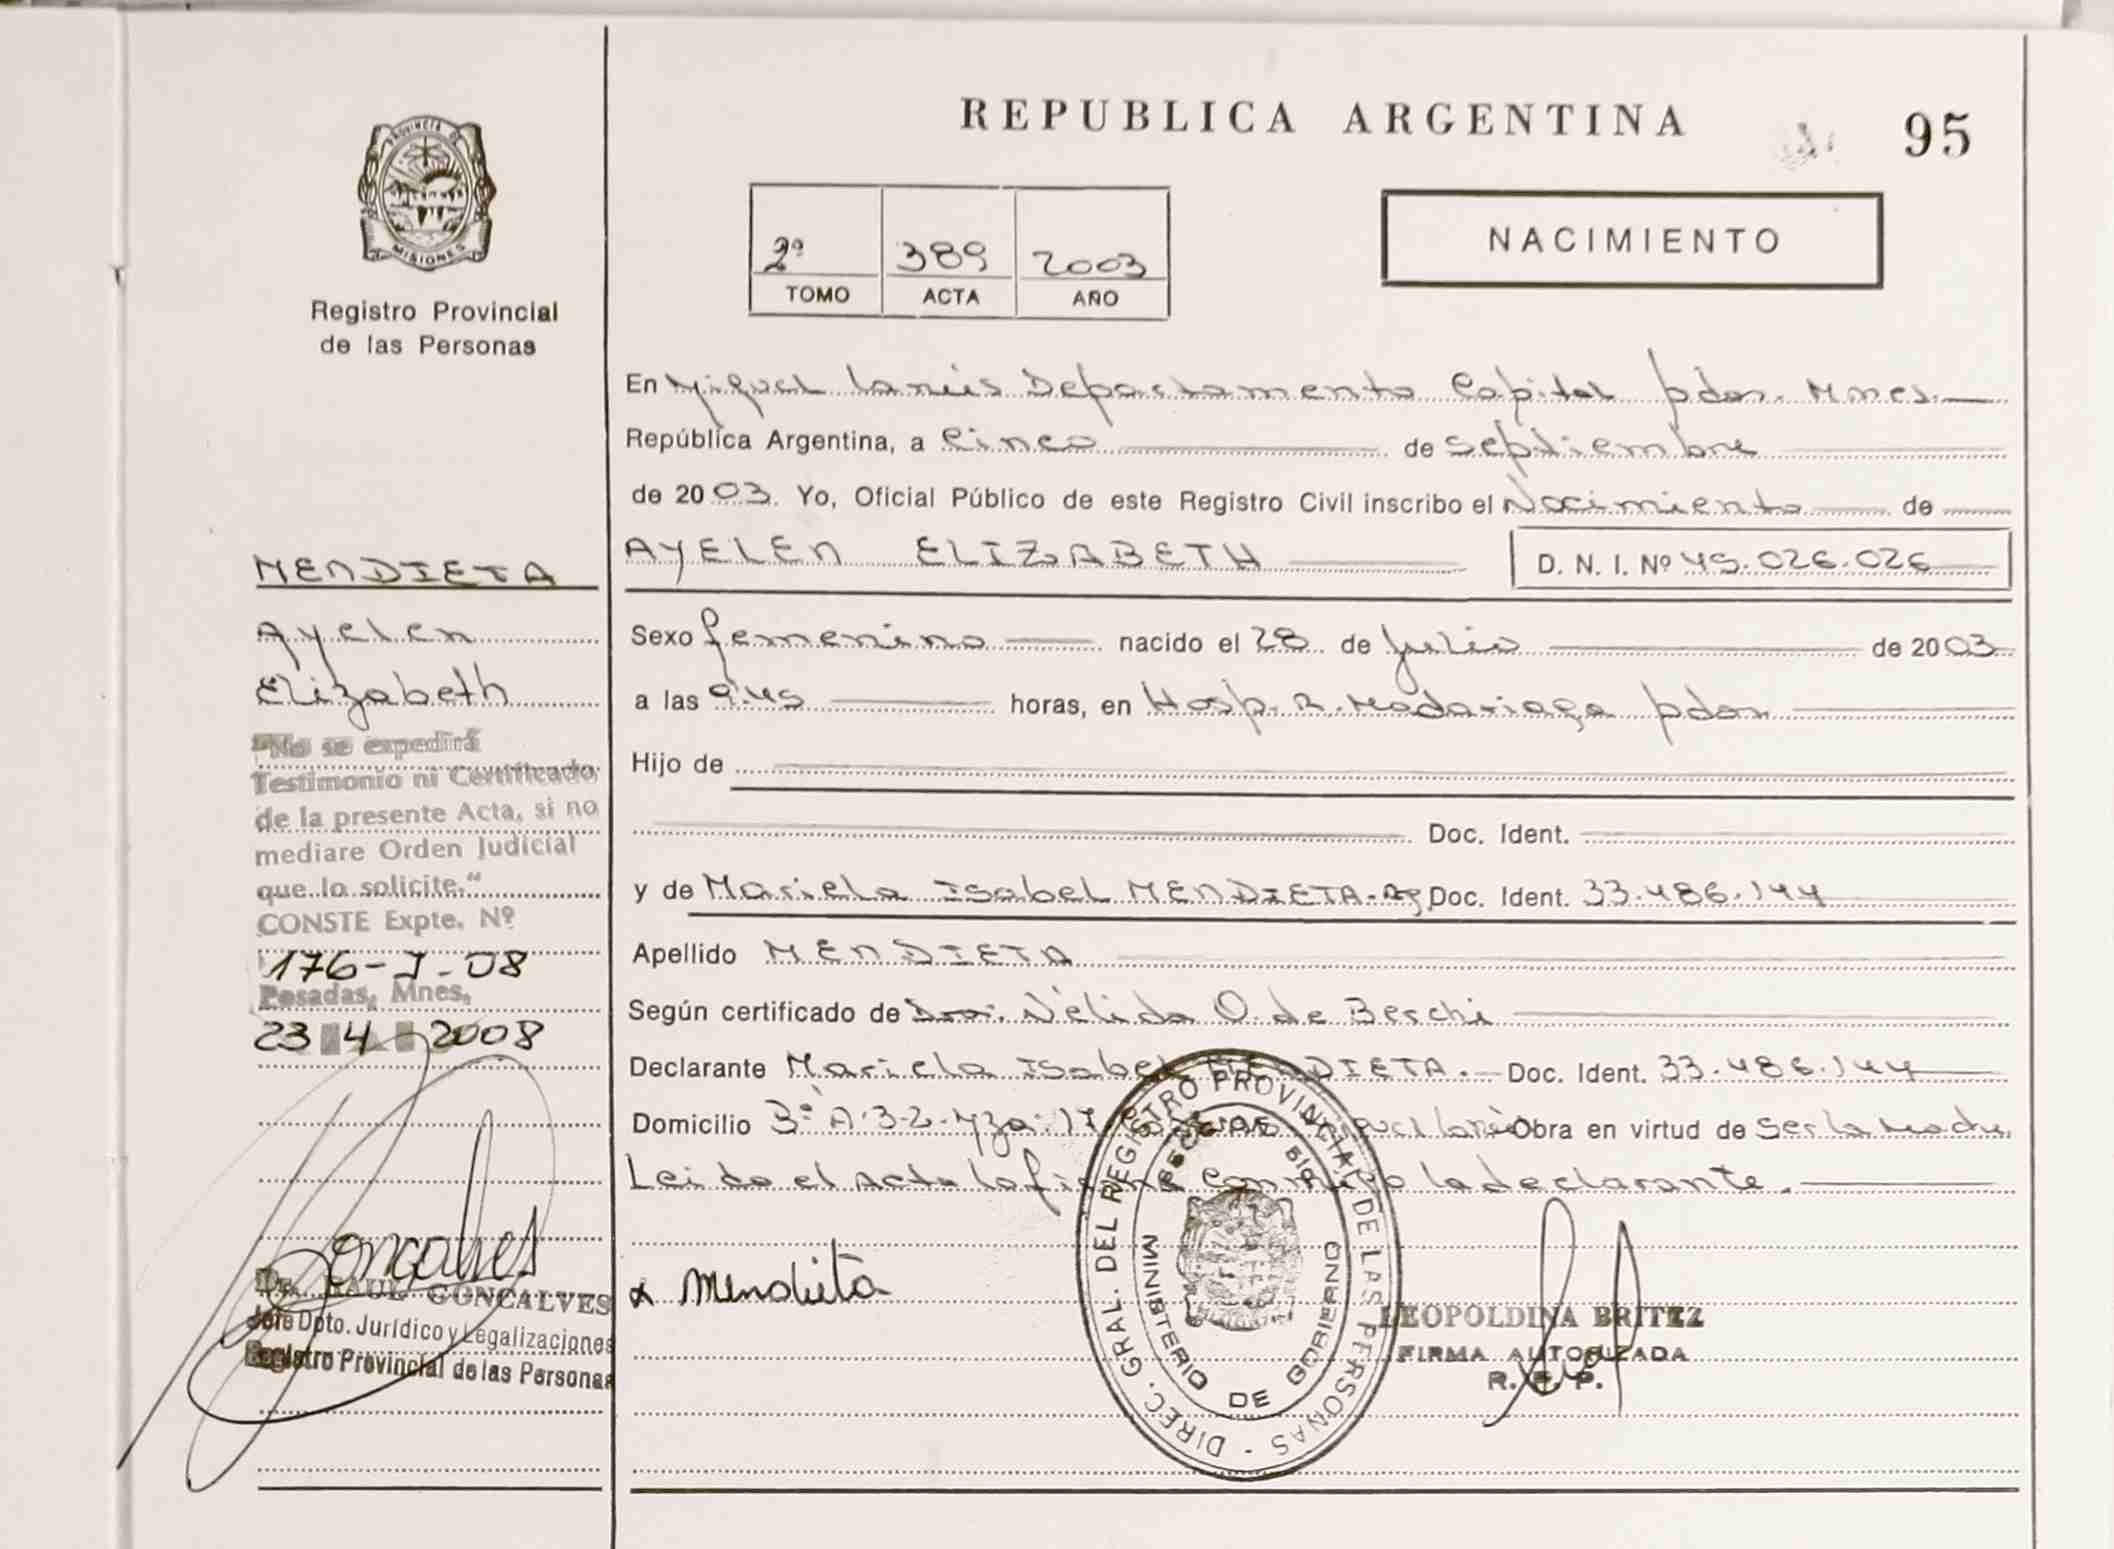 REPUBLICA ARGENTINA
95
PROVINCIA DE
MISIONES
Registro Provincial
de las Personas
2º 389 2003
TOMO ACTA AÑO
NACIMIENTO
En Miguel Lanús Departamento Capital pdas. Mnes.
República Argentina, a Cinco de septiembre
de 2003. Yo, Oficial Público de este Registro Civil inscribo el Nacimiento de
AYELEN ELIZABETH D. N. I. Nº 45.026.026
MENDIETA
Ayelen
Elizabeth
"No se expedirá
Testimonio ni Certificado
de la presente Acta, si no
mediare Orden Judicial
que lo solicite."
CONSTE Expte. Nº
176-J-08
Posadas, Mnes,
23 4 2008
Goncalves
Dr. RAUL GONCALVES
Jefe Dpto. Jurídico y Legalizaciones
Registro Provincial de las Personas
Sexo femenino nacido el 28 de Julio de 2003
a las 9.45 horas, en Hosp. R. Madariaga pdas
Hijo de
Doc. Ident.
y de Mariela Isabel MENDIETA-Arg Doc. Ident. 33.486.144
Apellido MENDIETA
Según certificado de Dra. Nélida O. de Berchi
Declarante Mariela Isabel MENDIETA. Doc. Ident. 33.486.144
Domicilio 3ª A.3-2-Mza:17 Miguel Lanús Obra en virtud de ser la Madre
Leida el Acta la firma conmigo la declarante.
x Mendieta
DIREC. GRAL. DEL REGISTRO PROVINCIAL DE LAS PERSONAS -
MINISTERIO DE GOBIERNO
LEOPOLDINA BRITEZ
FIRMA AUTORIZADA
R. P. P.